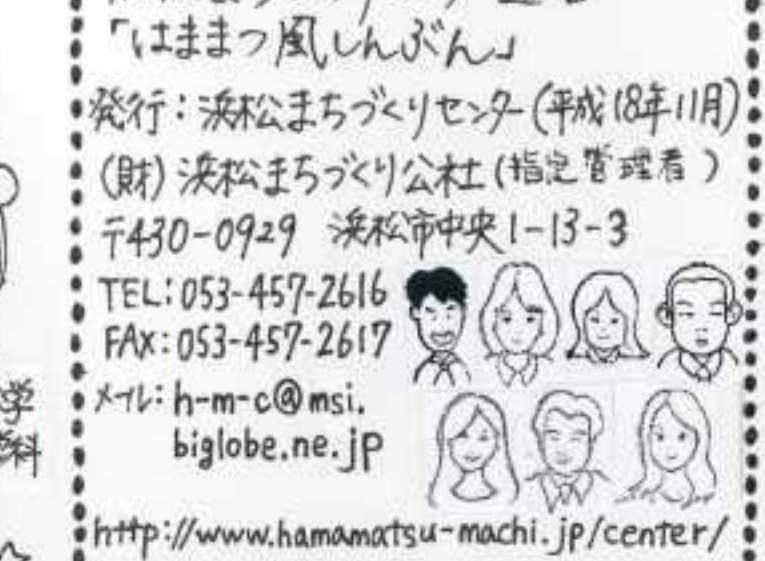 「はままつ風しんぶん」
発行：浜松まちづくりセンター(平成18年11月)
(財)浜松まちづくり公社(指定管理者)
〒430-0929 浜松市中央1-13-3
TEL:053-457-2616
FAX:053-457-2617
メール:h-m-c@msi.
biglobe.ne.jp
http://www.hamamatsu-machi.jp/center/
学
科